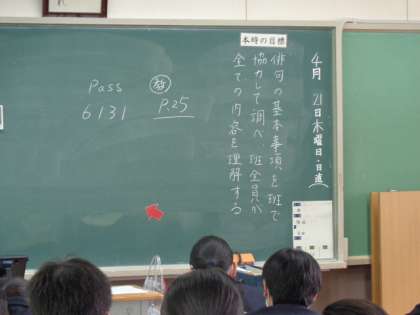 本時の目標
4月21日木曜日・日直
俳句の基本事項を班で
協力して調べ、班全員が
全ての内容を理解する
Pass
6131
P.25